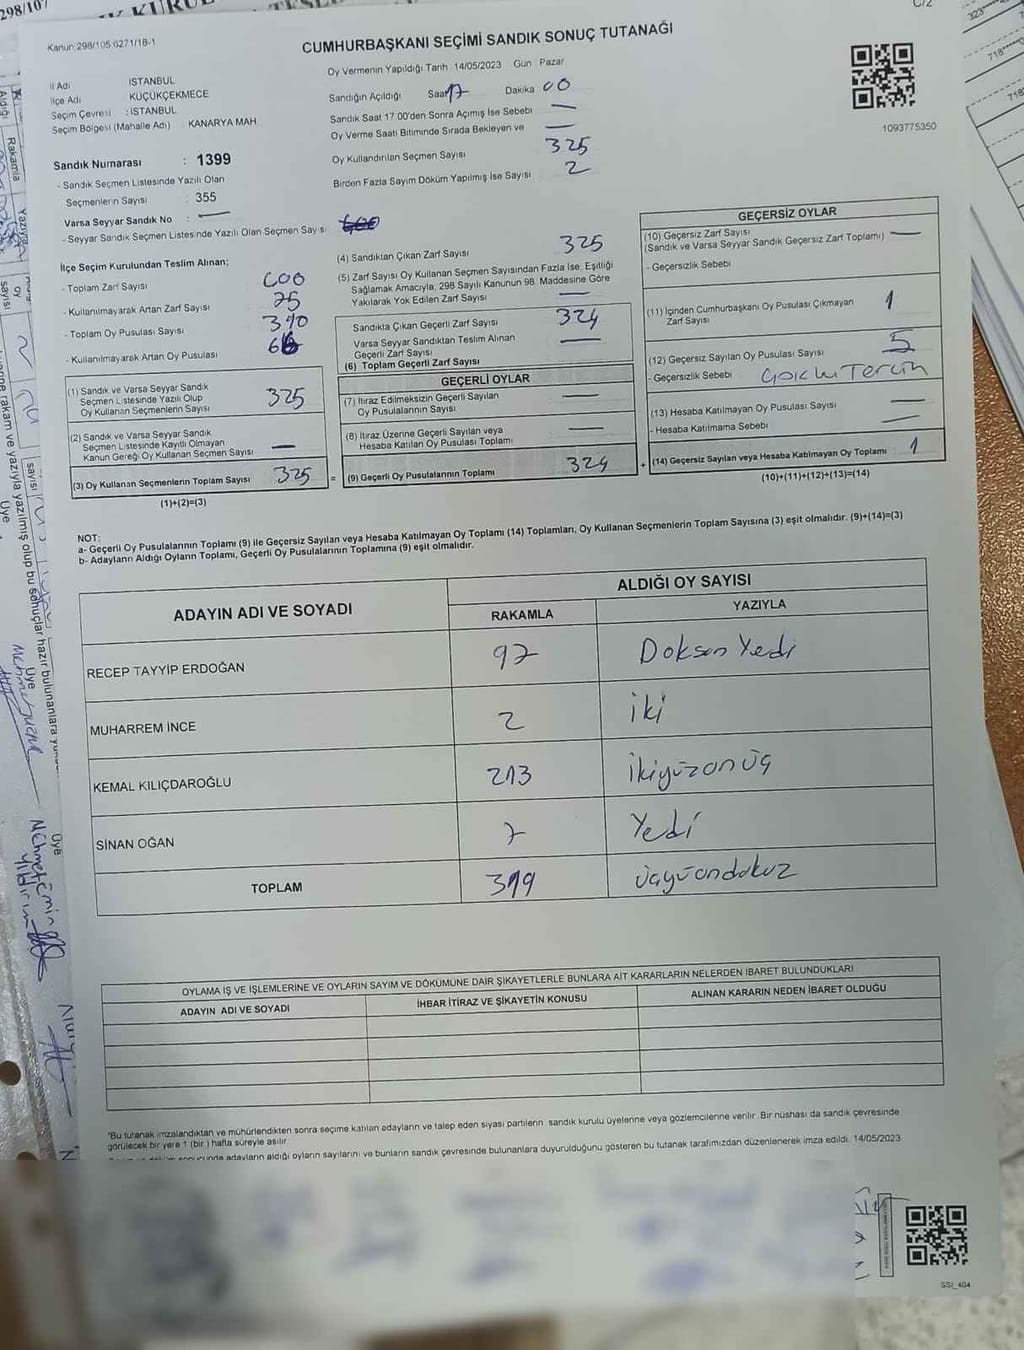 298/107
Kanun:298/105.6271/18-1
CUMHURBAŞKANI SEÇİMİ SANDIK SONUÇ TUTANAĞI
Oy Vermenin Yapıldığı Tarih 14/05/2023 Gün Pazar
İl Adı İSTANBUL
İlçe Adı KÜÇÜKÇEKMECE
Seçim Çevresi : İSTANBUL
Seçim Bölgesi (Mahalle Adı) KANARYA MAH.
Sandığın Açıldığı Saat 17 Dakika 00
Sandık Saat 17 00'den Sonra Açımış İse Sebebi —
Oy Verme Saati Bitiminde Sırada Bekleyen ve —
Oy Kullandırılan Seçmen Sayısı 325
Birden Fazla Sayım Döküm Yapılmış İse Sayısı 2
1093775350
Sandık Numarası : 1399
- Sandık Seçmen Listesinde Yazılı Olan
Seçmenlerin Sayısı : 355
Varsa Seyyar Sandık No : —
- Seyyar Sandık Seçmen Listesinde Yazılı Olan Seçmen Sayısı
İlçe Seçim Kurulundan Teslim Alınan;
- Toplam Zarf Sayısı 600
- Kullanılmayarak Artan Zarf Sayısı 75
- Toplam Oy Pusulası Sayısı 390
- Kullanılmayarak Artan Oy Pusulası
(1) Sandık ve Varsa Seyyar Sandık
Seçmen Listesinde Yazılı Olup
Oy Kullanan Seçmenlerin Sayısı 325
(2) Sandık ve Varsa Seyyar Sandık
Seçmen Listesinde Kayıtlı Olmayan
Kanun Gereği Oy Kullanan Seçmen Sayısı —
(3) Oy Kullanan Seçmenlerin Toplam Sayısı 325
(1)+(2)=(3)
(4) Sandıktan Çıkan Zarf Sayısı 325
(5) Zarf Sayısı Oy Kullanan Seçmen Sayısından Fazla İse, Eşitliği
Sağlamak Amacıyla, 298 Sayılı Kanunun 98. Maddesine Göre
Yakılarak Yok Edilen Zarf Sayısı —
Sandıkta Çıkan Geçerli Zarf Sayısı 324
Varsa Seyyar Sandıktan Teslim Alınan
Geçerli Zarf Sayısı —
(6) Toplam Geçerli Zarf Sayısı
GEÇERLİ OYLAR
(7) İtiraz Edilmeksizin Geçerli Sayılan
Oy Pusulalarının Sayısı —
(8) İtiraz Üzerine Geçerli Sayılan veya
Hesaba Katılan Oy Pusulası Toplamı —
(9) Geçerli Oy Pusulalarının Toplamı 324
GEÇERSİZ OYLAR
(10) Geçersiz Zarf Sayısı
(Sandık ve Varsa Seyyar Sandık Geçersiz Zarf Toplamı) —
- Geçersizlik Sebebi
(11) İçinden Cumhurbaşkanı Oy Pusulası Çıkmayan
Zarf Sayısı 1
(12) Geçersiz Sayılan Oy Pusulası Sayısı 5
- Geçersizlik Sebebi
(13) Hesaba Katılmayan Oy Pusulası Sayısı —
- Hesaba Katılmama Sebebi —
(14) Geçersiz Sayılan veya Hesaba Katılmayan Oy Toplamı 1
(10)+(11)+(12)+(13)=(14)
NOT:
a- Geçerli Oy Pusulalarının Toplamı (9) ile Geçersiz Sayılan veya Hesaba Katılmayan Oy Toplamı (14) Toplamları, Oy Kullanan Seçmenlerin Toplam Sayısına (3) eşit olmalıdır. (9)+(14)=(3)
b- Adayların Aldığı Oyların Toplamı, Geçerli Oy Pusulalarının Toplamına (9) eşit olmalıdır.
ADAYIN ADI VE SOYADI ALDIĞI OY SAYISI
RAKAMLA YAZIYLA
RECEP TAYYİP ERDOĞAN 97 Doksan Yedi
MUHARREM İNCE 2 İki
KEMAL KILIÇDAROĞLU 213 İkiyüzonüç
SİNAN OĞAN 7 Yedi
TOPLAM 319
OYLAMA İŞ VE İŞLEMLERİNE VE OYLARIN SAYIM VE DÖKÜMÜNE DAİR ŞİKAYETLERLE BUNLARA AİT KARARLARIN NELERDEN İBARET BULUNDUKLARI
ADAYIN ADI VE SOYADI İHBAR İTİRAZ VE ŞİKAYETİN KONUSU ALINAN KARARIN NEDEN İBARET OLDUĞU
"Bu tutanak imzalandıktan ve mühürlendikten sonra seçime katılan adayların ve talep eden siyasi partilerin sandık kurulu üyelerine veya gözlemcilerine verilir. Bir nüshası da sandık çevresinde
görülecek bir yere 1 (bir) hafta süreyle asılır.
adayların aldığı oyların sayılarını ve bunların sandık çevresinde bulunanlara duyurulduğunu gösteren bu tutanak tarafımızdan düzenlenerek imza edildi. 14/05/2023
SSI_404